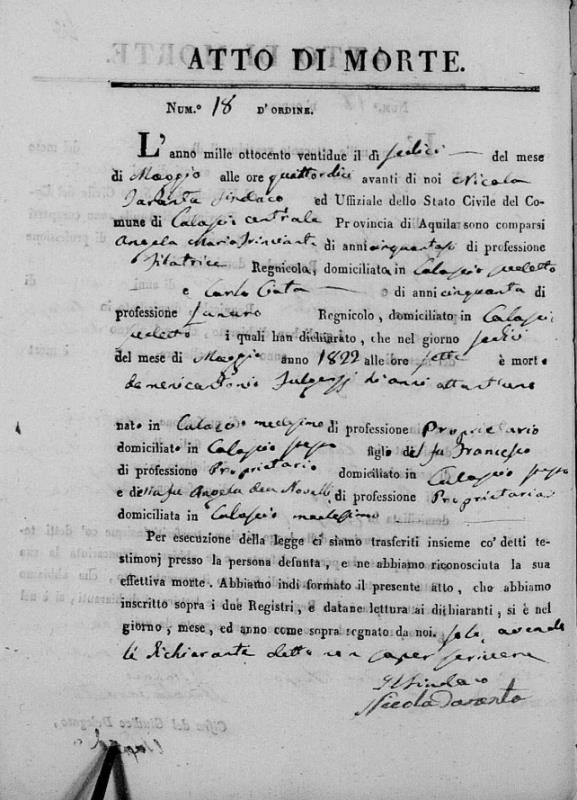 ATTO DI MORTE.
NUM.° 18 D'ORDINE.
L'anno mille ottocento ventidue il dì sedici del mese
di Maggio alle ore quattordici avanti di noi Nicola
Taranta Sindaco ed Uffiziale dello Stato Civile del Co-
mune di Calascio centrale Provincia di Aquila sono comparsi
Angela Maria di anni cinquantasei di professione
Filatrice Regnicola, domiciliata in Calascio predetto
e Carlo di anni cinquanta di
professione Funaro Regnicolo, domiciliato in Calascio
predetto i quali han dichiarato, che nel giorno sedici
del mese di Maggio anno 1822 alle ore sette è morto
Domenicantonio Fulgenzj di anni ottantuno
nato in Calascio medesimo di professione Proprietario
domiciliato in Calascio stesso figlio del fu Francesco
di professione Proprietario domiciliato in Calascio stesso
e della fu Angela de Novelli, di professione Proprietaria
domiciliata in Calascio medesimo
Per esecuzione della legge ci siamo trasferiti insieme co' detti te-
stimonj presso la persona defunta, e ne abbiamo riconosciuta la sua
effettiva morte. Abbiamo indi formato il presente atto, che abbiamo
inscritto sopra i due Registri, e datane lettura ai dichiaranti, si è nel
giorno, mese, ed anno come sopra segnato da noi. solo, avendo
li Dichiaranti detto non saper scrivere
Il Sindaco
Nicola Taranta